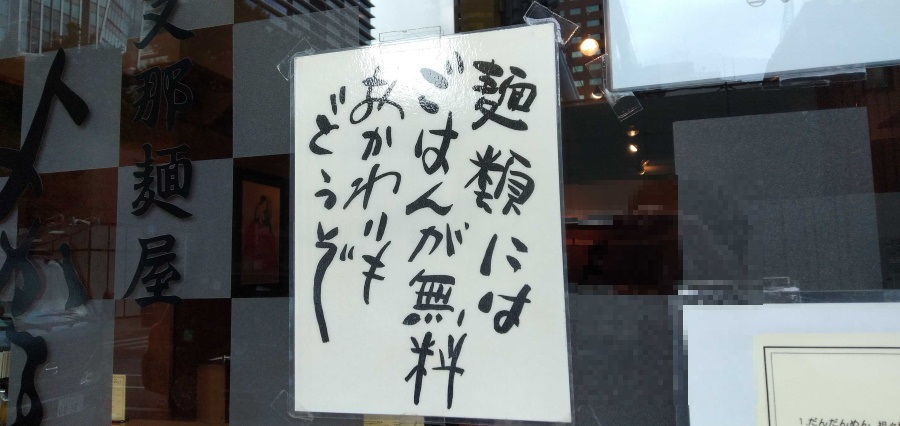 麺類には
ごはんが無料
おかわりも
どうぞ
支那麺屋
1.だんだんめん